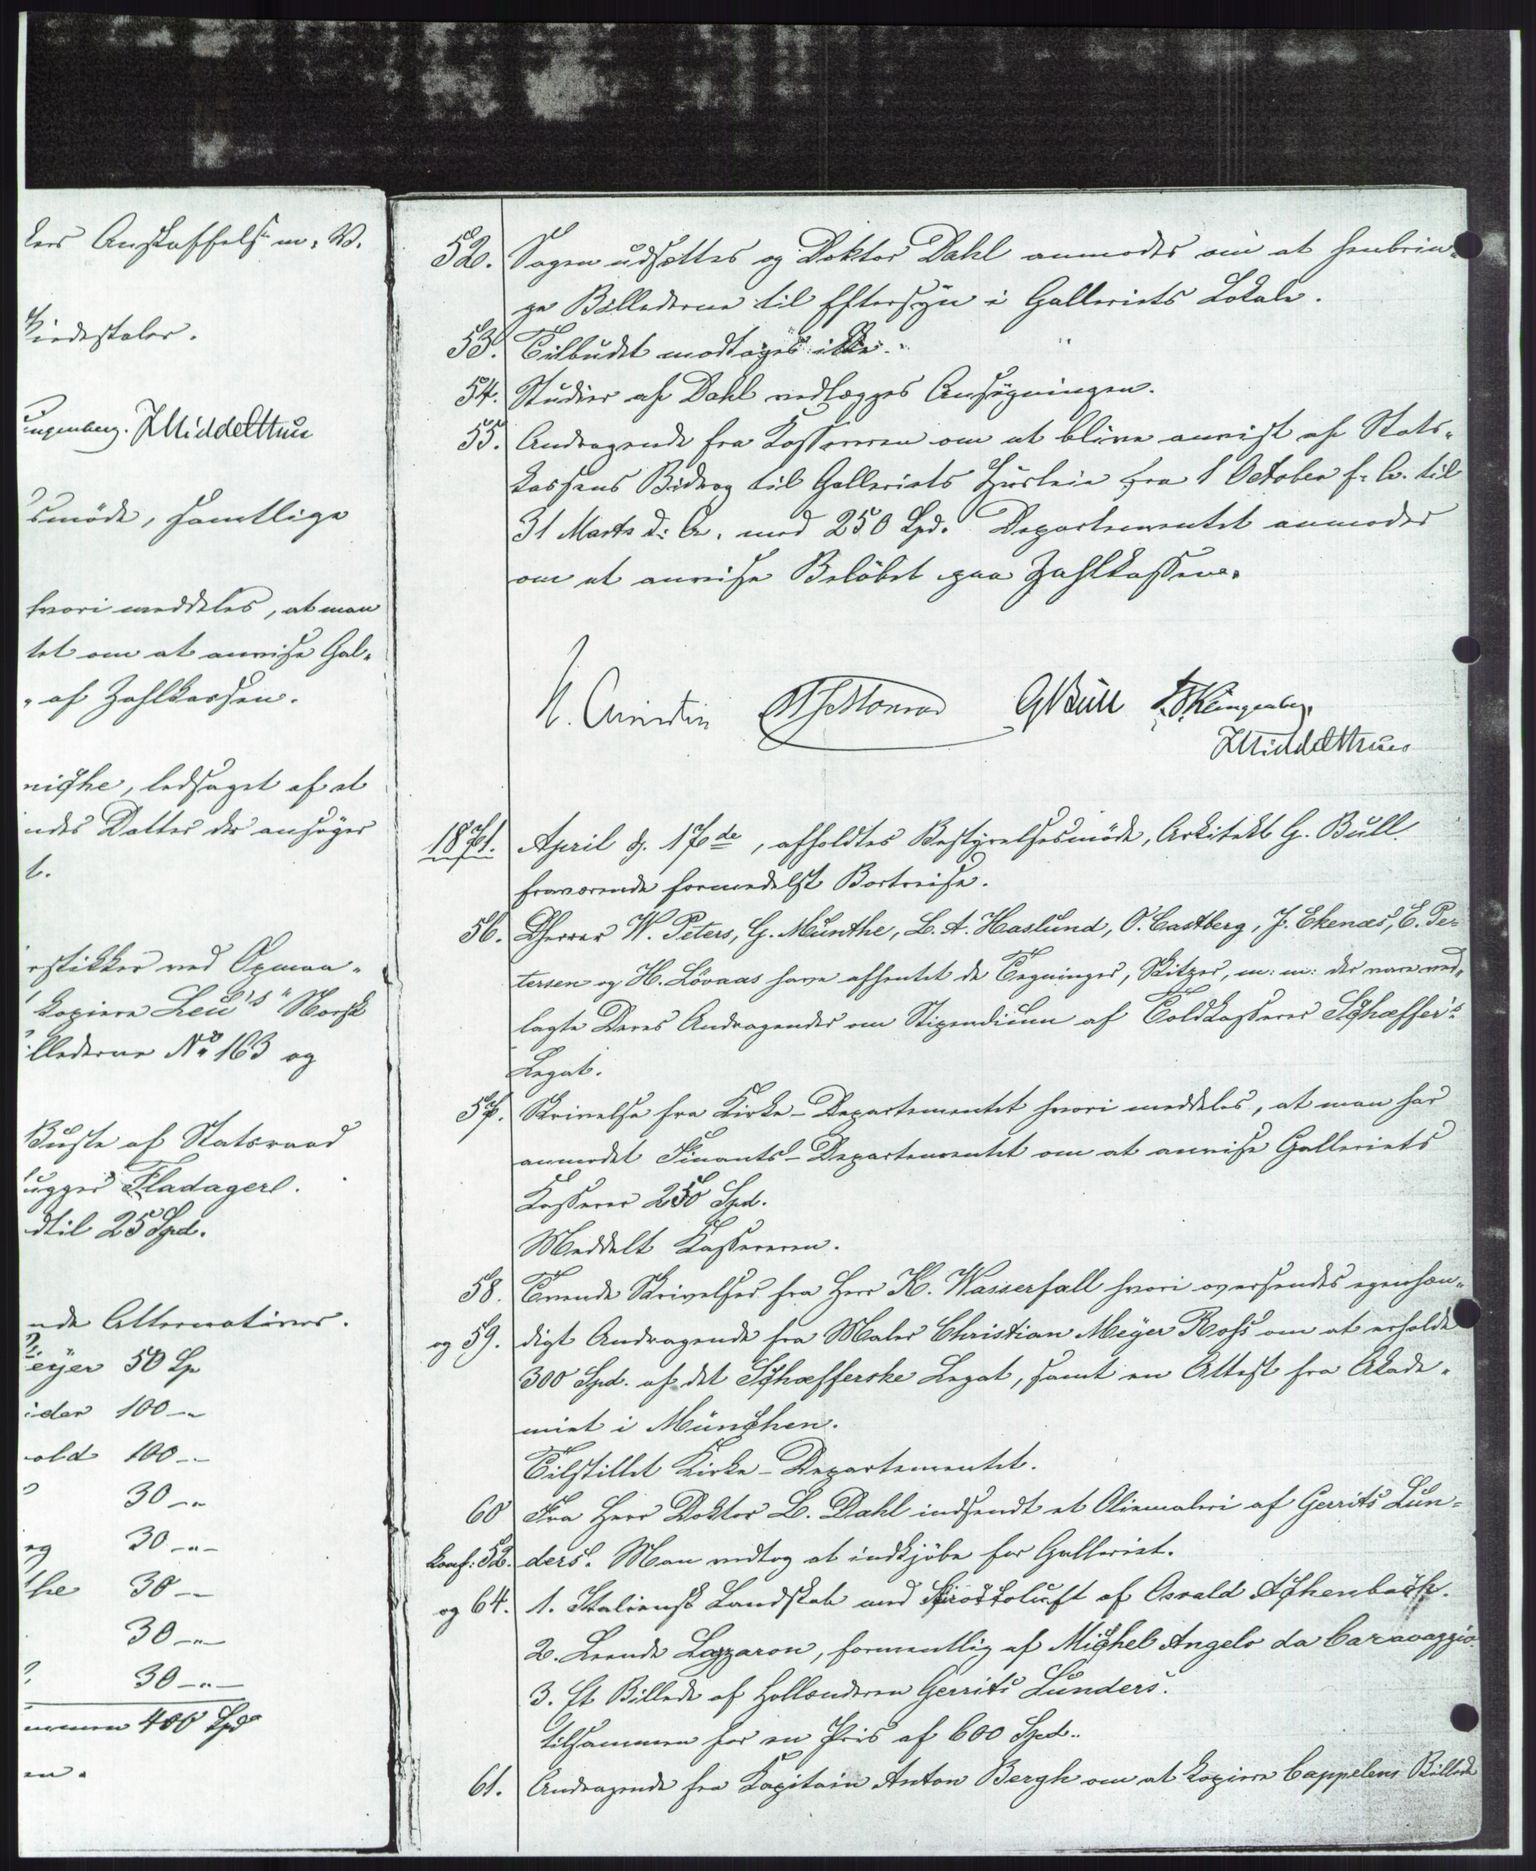 kers Anskaffelse m. V.
Piedestaler.
ingenberg. JMiddelthun
smöde, samtlige
hvori meddeles, at man
tet om at anvise Gal-
af Zahlkassen.
niche, ledsaget af et
ndes Datter der ansøger
t.
rstikker ved Opman-
kopiere Leu's "Norsk
illederne No 163 og
Buste af Statsraad
ugger Fladager.
dtil 25 Spd.
nde Alternativer.
eyer 50 Sp
ider 100 -"-
old 100 -"-
30 -"-
eg 30 -"-
the 30 -"-
30 -"-
30 -"-
ammen 400 Spd
en.
52. Sagen udsættes og Doktor Dahl anmodes om at henbrin-
ge Billederne til Eftersyn i Galleriets Lokale.
53. Tilbudet modtages ikke.
54. Studier af Dahl vedlægges Ansøgningen.
55. Andragende fra Kassereren om at blive anvist af Stats-
kassens Bidrag til Galleriets Husleie fra 1 October f. A. til
31 Marts d. A. med 250 Spd. Departementet anmodes
om at anvise Beløbet paa Zahlkassen.
H. Christie MJMonrad GBull Klingenberg.
JMiddelthun
1871. April d. 17de, afholdtes Bestyrelsesmöde, Arkitekt G. Bull
fraværende formedelst Bortreise.
56. Dherrer W. Peters, G. Munthe, L. A. Haslund, O. Castberg, J. Ekenæs, E. Pe-
tersen og H. Lövaas have afhentet de Tegninger, Skitzer, m: m: der vare ved-
lagte Deres Andragender om Stipendium af Toldkasserer Schæffer's
Legat.
57. Skrivelse fra Kirke-Departementet hvori meddeles, at man har
anmodet Finants-Departementet om at anvise Galleriets
Kasserer 250 Spd.
Meddelt Kassereren.
58. Tvende Skrivelser fra Herr K. Wasserfall hvori oversendes egenhæn-
og 59. digt Andragende fra Maler Christian Meyer Ross om at erholde
300 Spd. af det Schæfferske Legat, samt en Attest fra Akade-
miet i München.
Tilstillet Kirke-Departementet.
60 Fra Herr Doktor L. Dahl indsendt et Oliemaleri af Gerrits Lun-
konf: 52. ders. Man vedtog at indkjöbe for Galleriet.
og 64. 1. Italiensk Landskab med Siroccoluft af Osvald Achenbach.
2. Leende Lazzaron, formentlig af Michel Angelo da Caravaggio.
3. Et Billede af Hollænderen Gerrits Lunders.
tilsammen for en Pris af 600 Spd.
61. Andragende fra Kapitain Anton Bergh om at kopiere Cappelens Billede